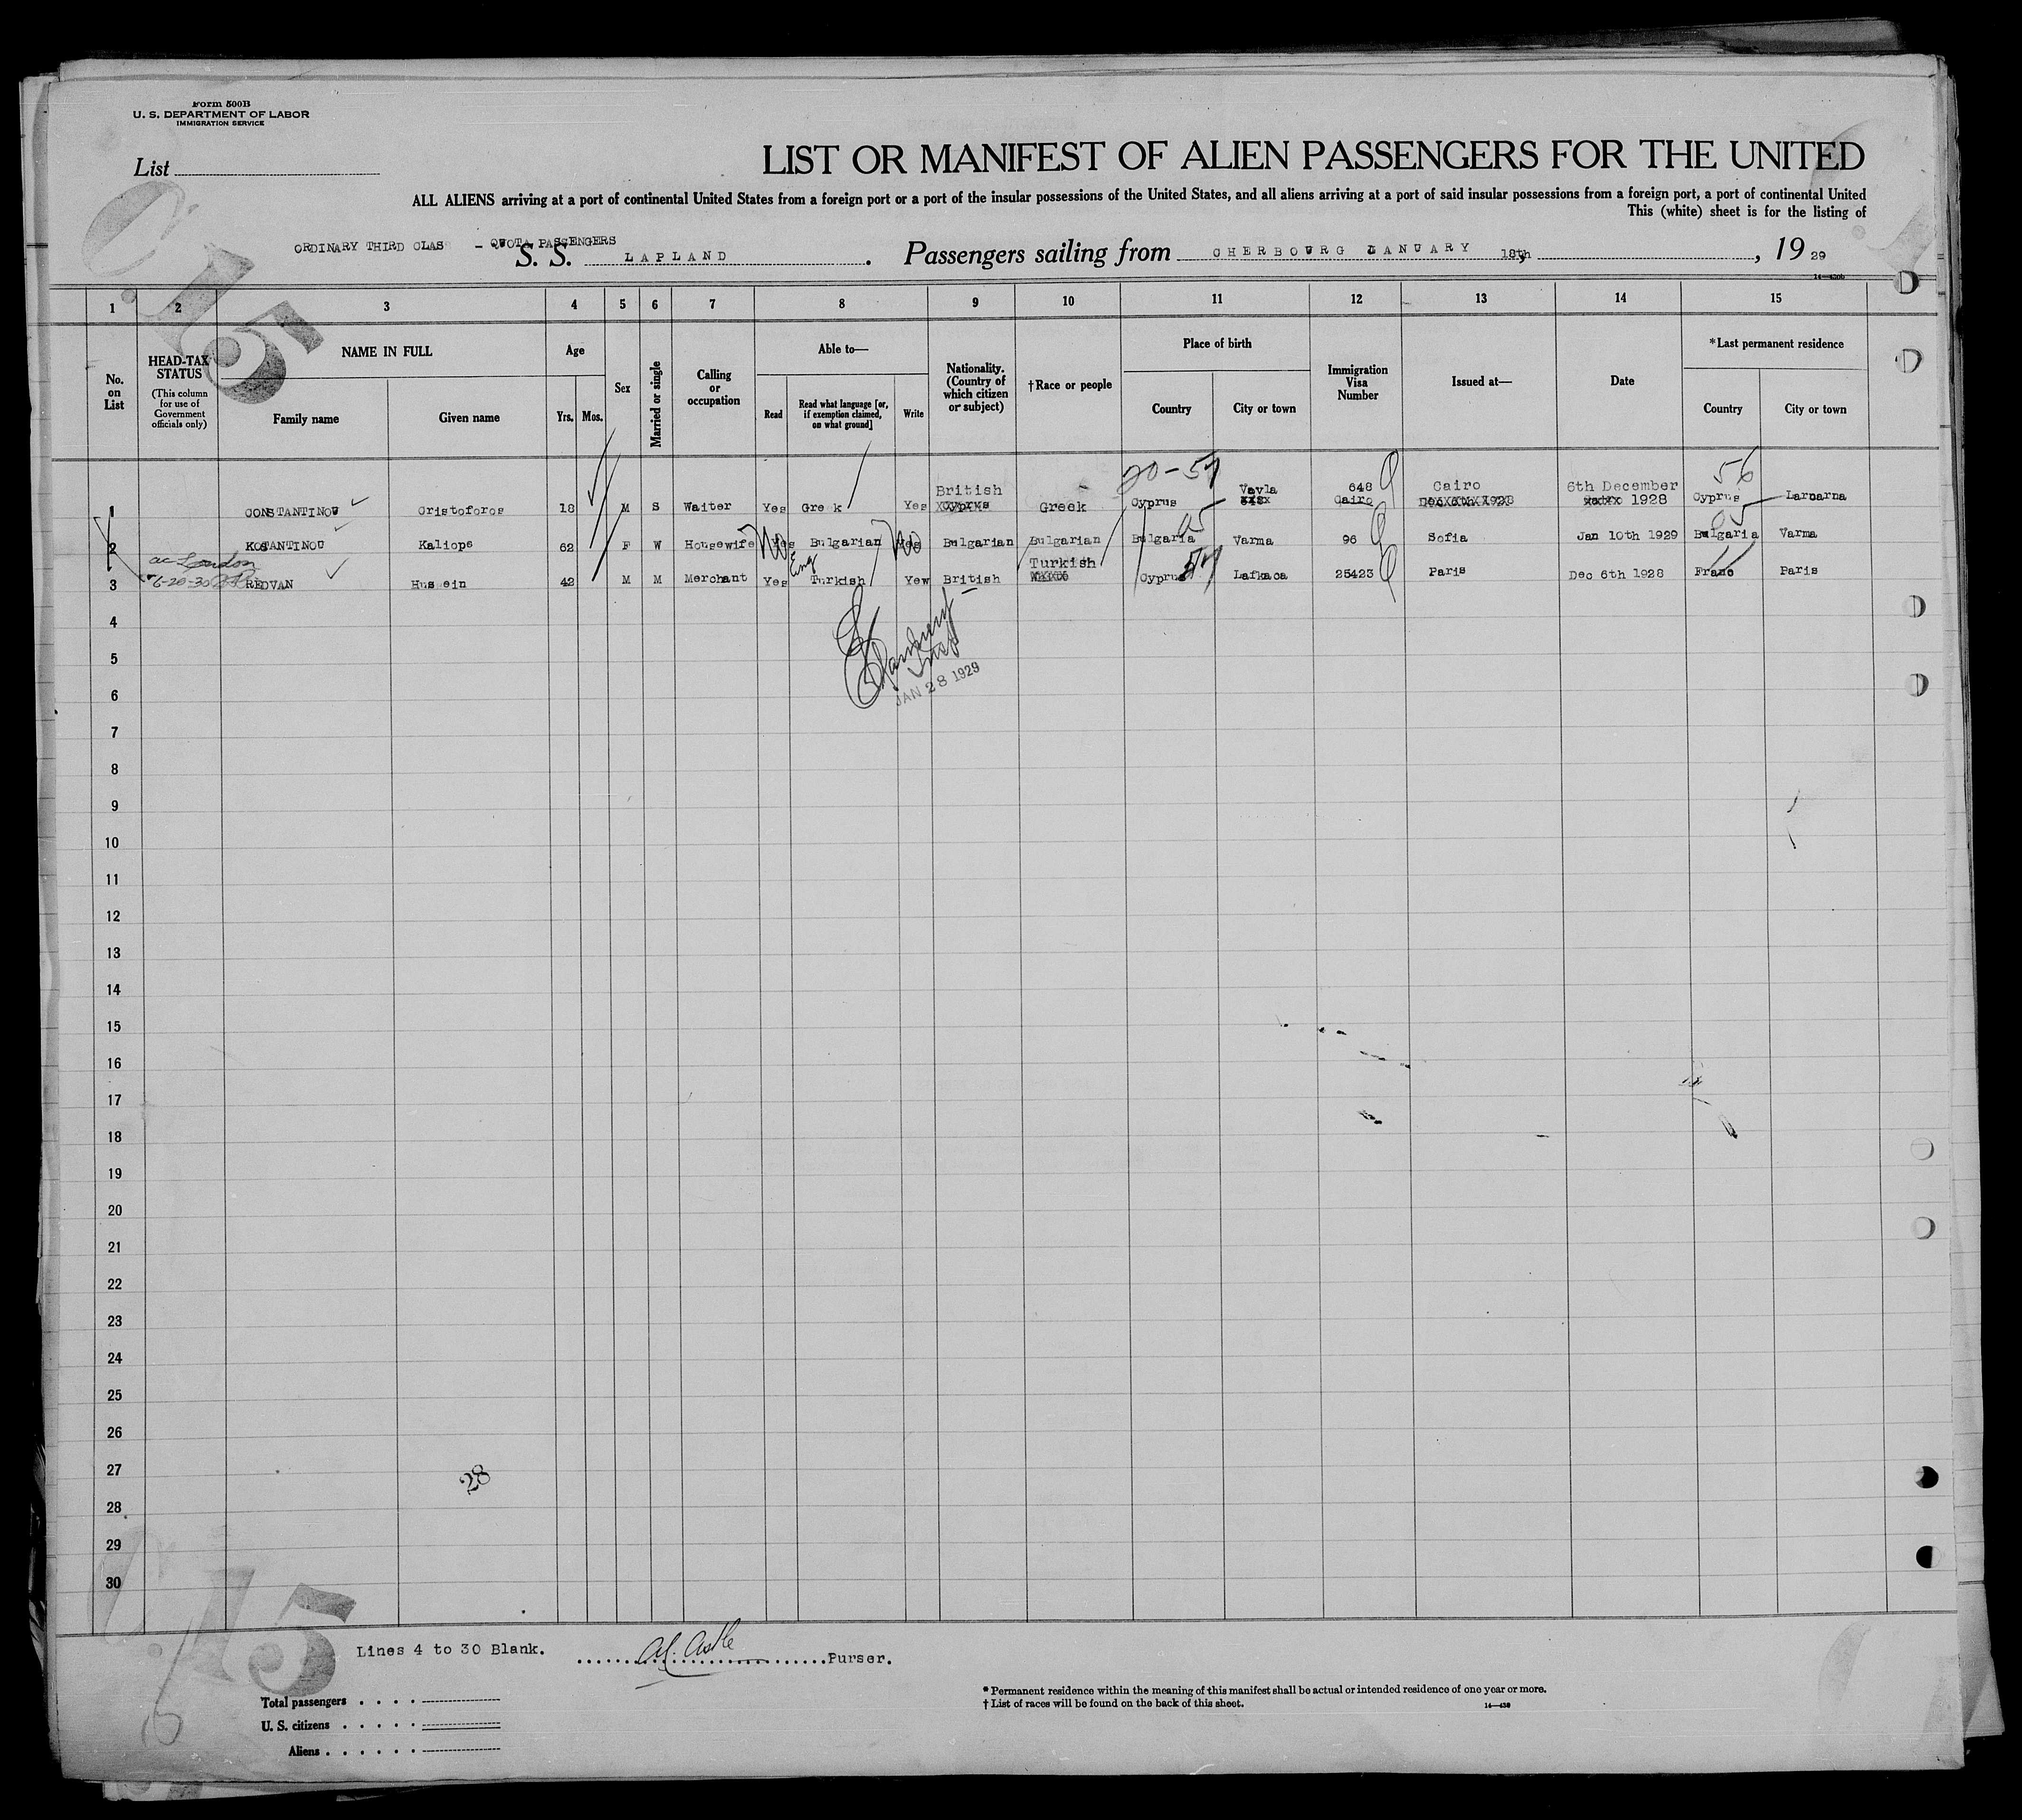 Form 500B
U. S. DEPARTMENT OF LABOR
IMMIGRATION SERVICE
List
LIST OR MANIFEST OF ALIEN PASSENGERS FOR THE UNITED
ALL ALIENS arriving at a port of continental United States from a foreign port or a port of the insular possessions of the United States, and all aliens arriving at a port of said insular possessions from a foreign port, a port of continental United
This (white) sheet is for the listing of
ORDINARY THIRD CLAS - QUOTA PASSENGERS
S. S. LAPLAND. Passengers sailing from CHERBOURG JANUARY 18th, 1929
1 2 3 4 5 6 7 8 9 10 11 12 13 14 15
No. on List
HEAD-TAX STATUS (This column for use of Government officials only)
NAME IN FULL Family name Given name
Age Yrs. Mos.
Sex
Married or single
Calling or occupation
Able to— Read Read what language [or, if exemption claimed, on what ground] Write
Nationality. (Country of which citizen or subject)
†Race or people
Place of birth Country City or town
Immigration Visa Number
Issued at—
Date
*Last permanent residence Country City or town
20-57 56
1 CONSTANTINOU Cristoforos 18 M S Waiter Yes Gre k Yes British Greek Cyprus Vavla 648 Cairo Cairo 6th December 1928 Cyprus Larnarna
2 KOSTANTINOU Kaliope 62 F W Housewife Yes No Bulgarian Yes No Bulgarian Bulgarian Bulgaria 05 Varma 96 Sofia Jan 10th 1929 Bulgaria 05 Varma
ac London
6-20-30
3 REDVAN Hus ein 42 M M Merchant Yes Eng Turkish Yew British Turkish Cyprus 57 Lafkaca 25423 Paris Dec 6th 1928 Franc 11 Paris
4
Insp
5
JAN 28 1929
6
7
8
9
10
11
12
13
14
15
16
17
18
19
20
21
22
23
24
25
26
27
28
28
29
30
C.15
15
Lines 4 to 30 Blank. Purser.
Total passengers
U. S. citizens
Aliens
* Permanent residence within the meaning of this manifest shall be actual or intended residence of one year or more.
† List of races will be found on the back of this sheet.
14—430